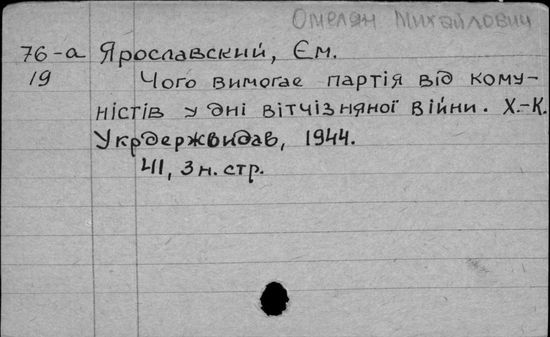 Омелян Михайлович
76-а Ярославский, Єм.
19 Чого вимогає партія від кому-
ністів у дні вітчізняної війни. Х.-К.
Укрдержвидав, 1944.
41, 3 н. стр.